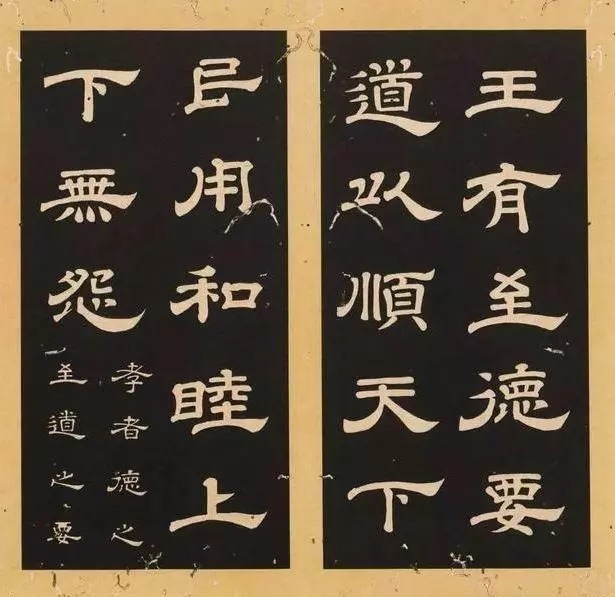 王有至德要
道以順天下
民用和睦上
下無怨
孝者德之
至道之要